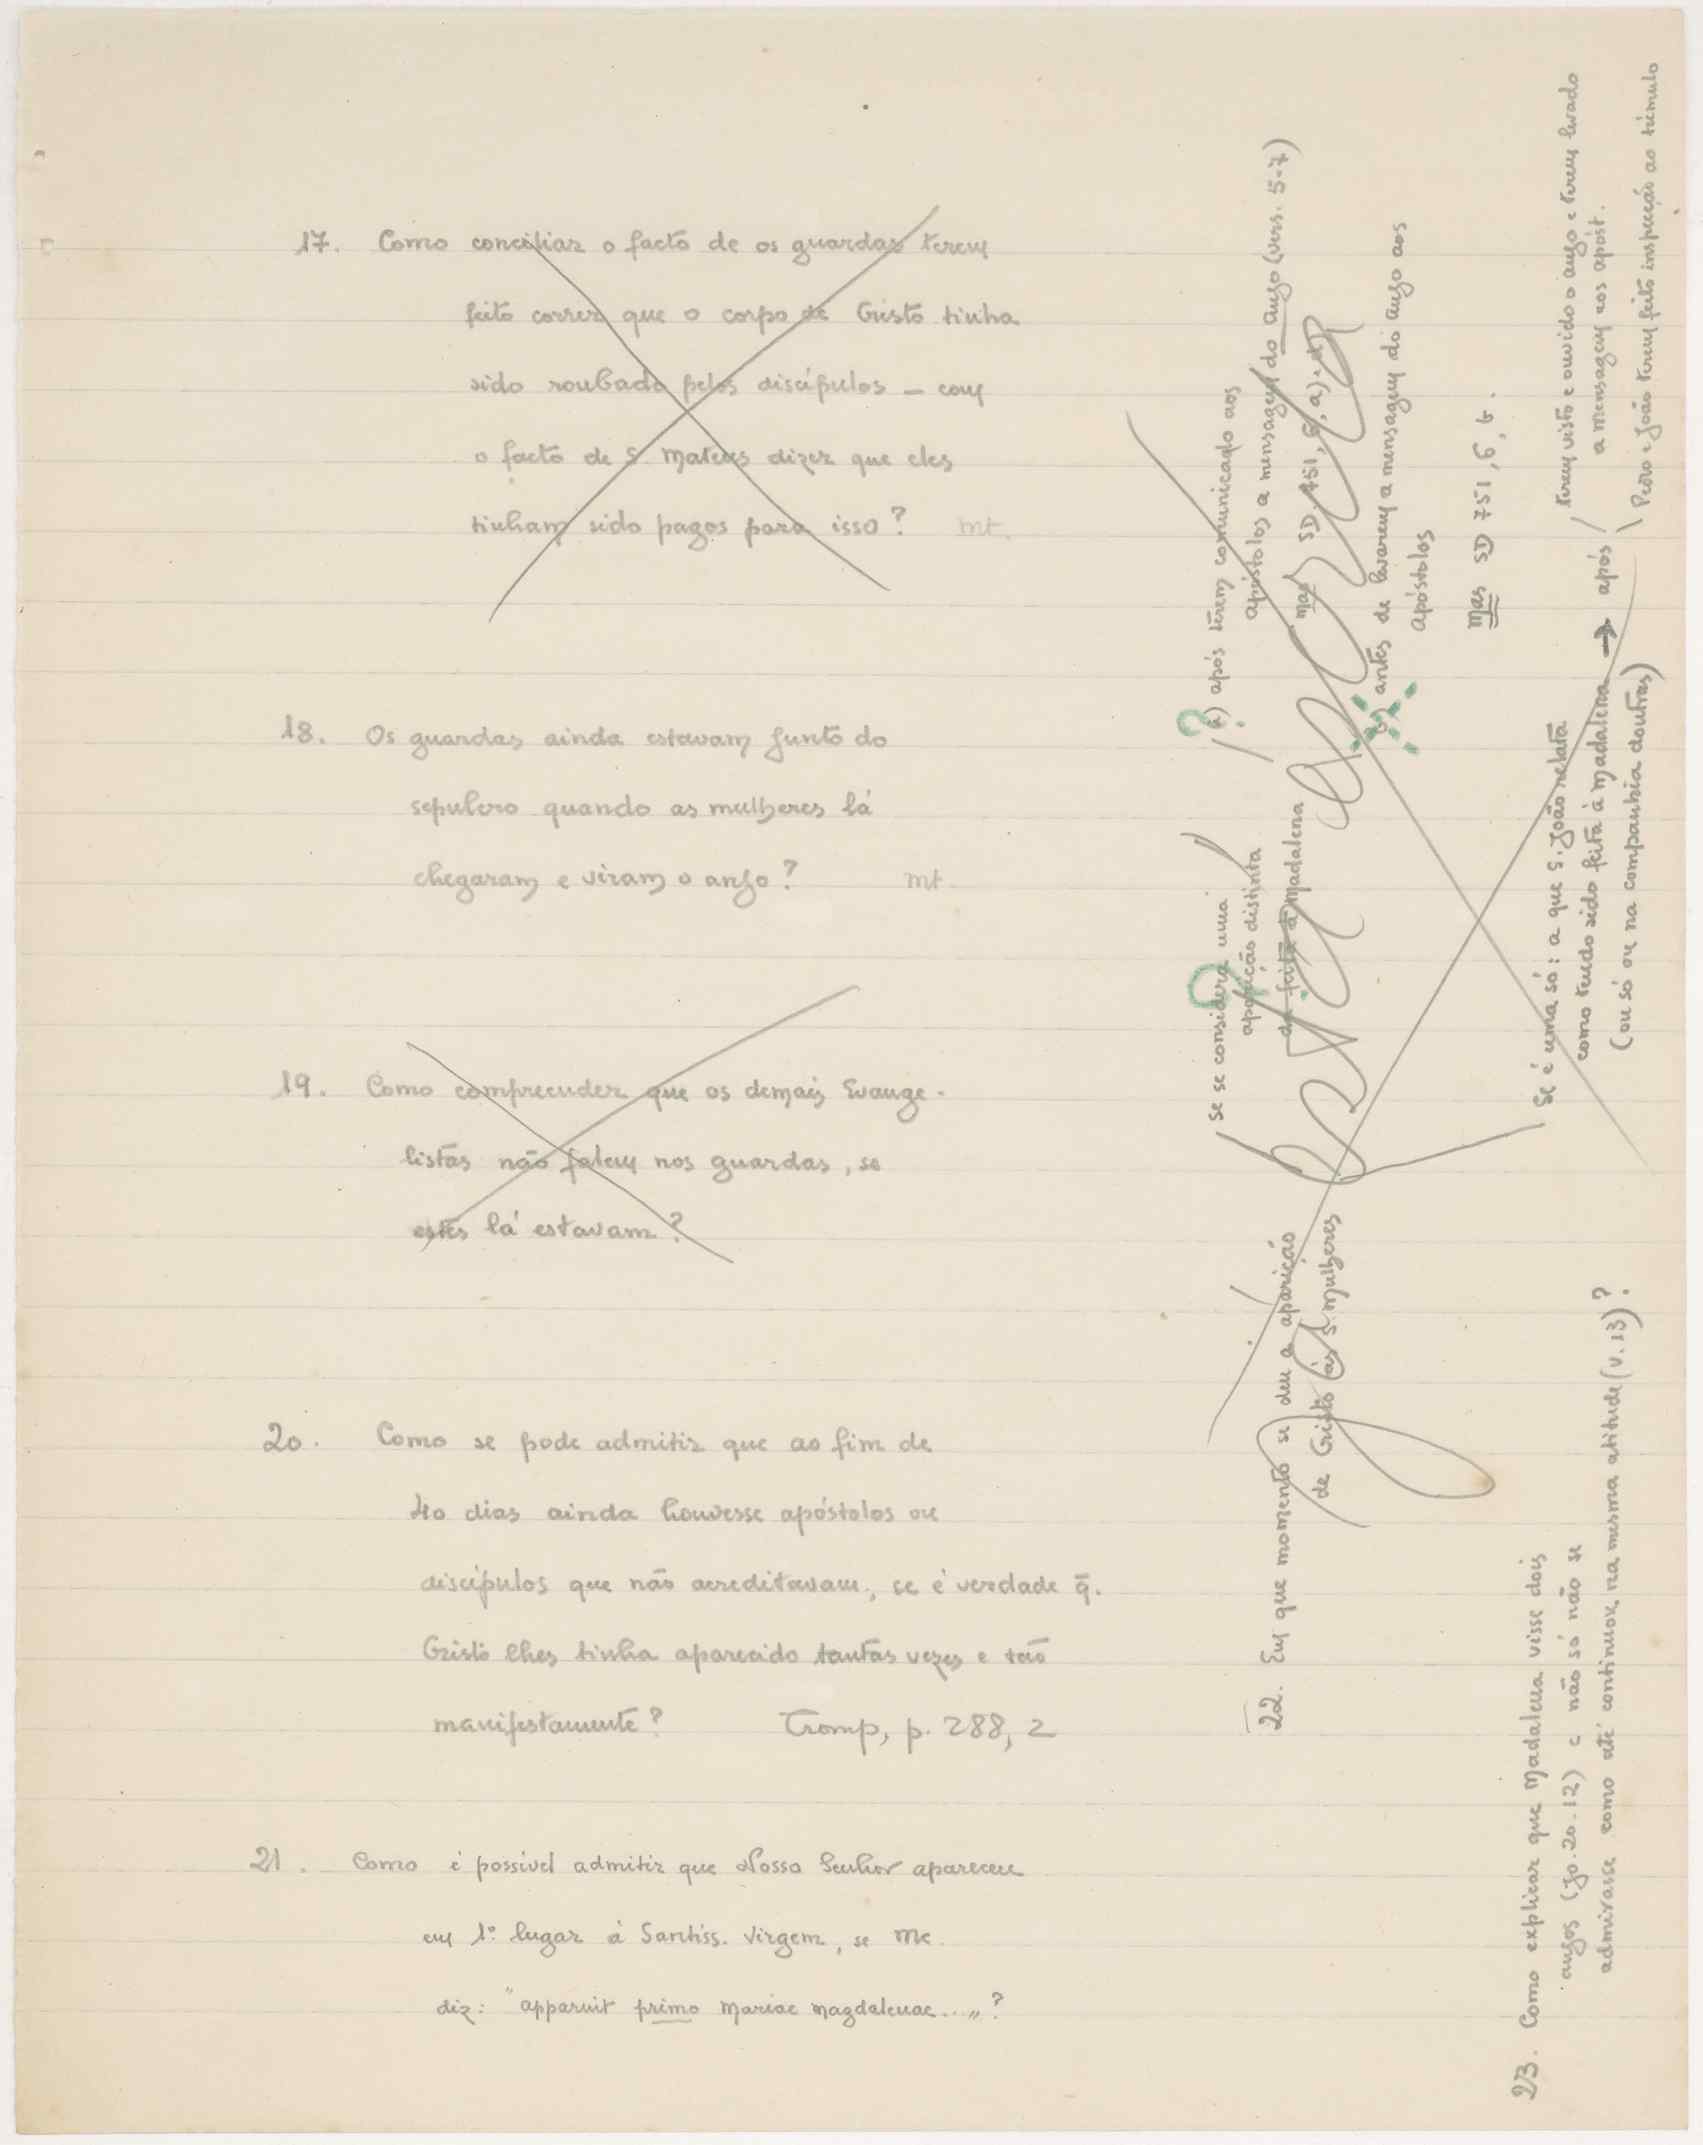 17. Como conciliar o facto de os guardas terem
feito correr que o corpo de Cristo tinha
sido roubado pelos discípulos – com
o facto de S. Mateus dizer que eles
tinham sido pagos para isso? mt.
18. Os guardas ainda estavam junto do
sepulcro quando as mulheres lá
chegaram e viram o anjo? mt.
19. Como compreender que os demais Evange-
listas não falem nos guardas, se
estes lá estavam?
20. Como se pode admitir que ao fim de
40 dias ainda houvesse apóstolos ou
discípulos que não acreditavam, se é verdade q̄.
Cristo lhes tinha aparecido tantas vezes e tão
manifestamente? Tromp, p. 288, 2
21. Como é possível admitir que Nosso Senhor apareceu
em 1º lugar à Santíss. Virgem, se Mc.
diz: "apparuit primo Mariae Magdalenae...„?
22. Em que momento se deu a aparição
de Cristo às S. Mulheres
se se considera uma
aparição distinta
da feita a Madalena
a) após terem comunicado aos
apóstolos a mensagem do anjo (vers. 5-7)
mas SD 751, 6, a)
b) antes de levarem a mensagem do anjo aos
apóstolos
mas SD 751, 6, b.
Se é uma só: a que S. João relata
como tendo sido feita à Madalena → após
(ou só ou na companhia doutras)
terem visto e ouvido o anjo e terem levado
a mensagem aos apóst.
Pedro e João terem feito inspecção ao túmulo
23. Como explicar que Madalena visse dois
anjos (Jo. 20.12) e não só não se
admirasse como até continuou na mesma atitude (v. 13)?